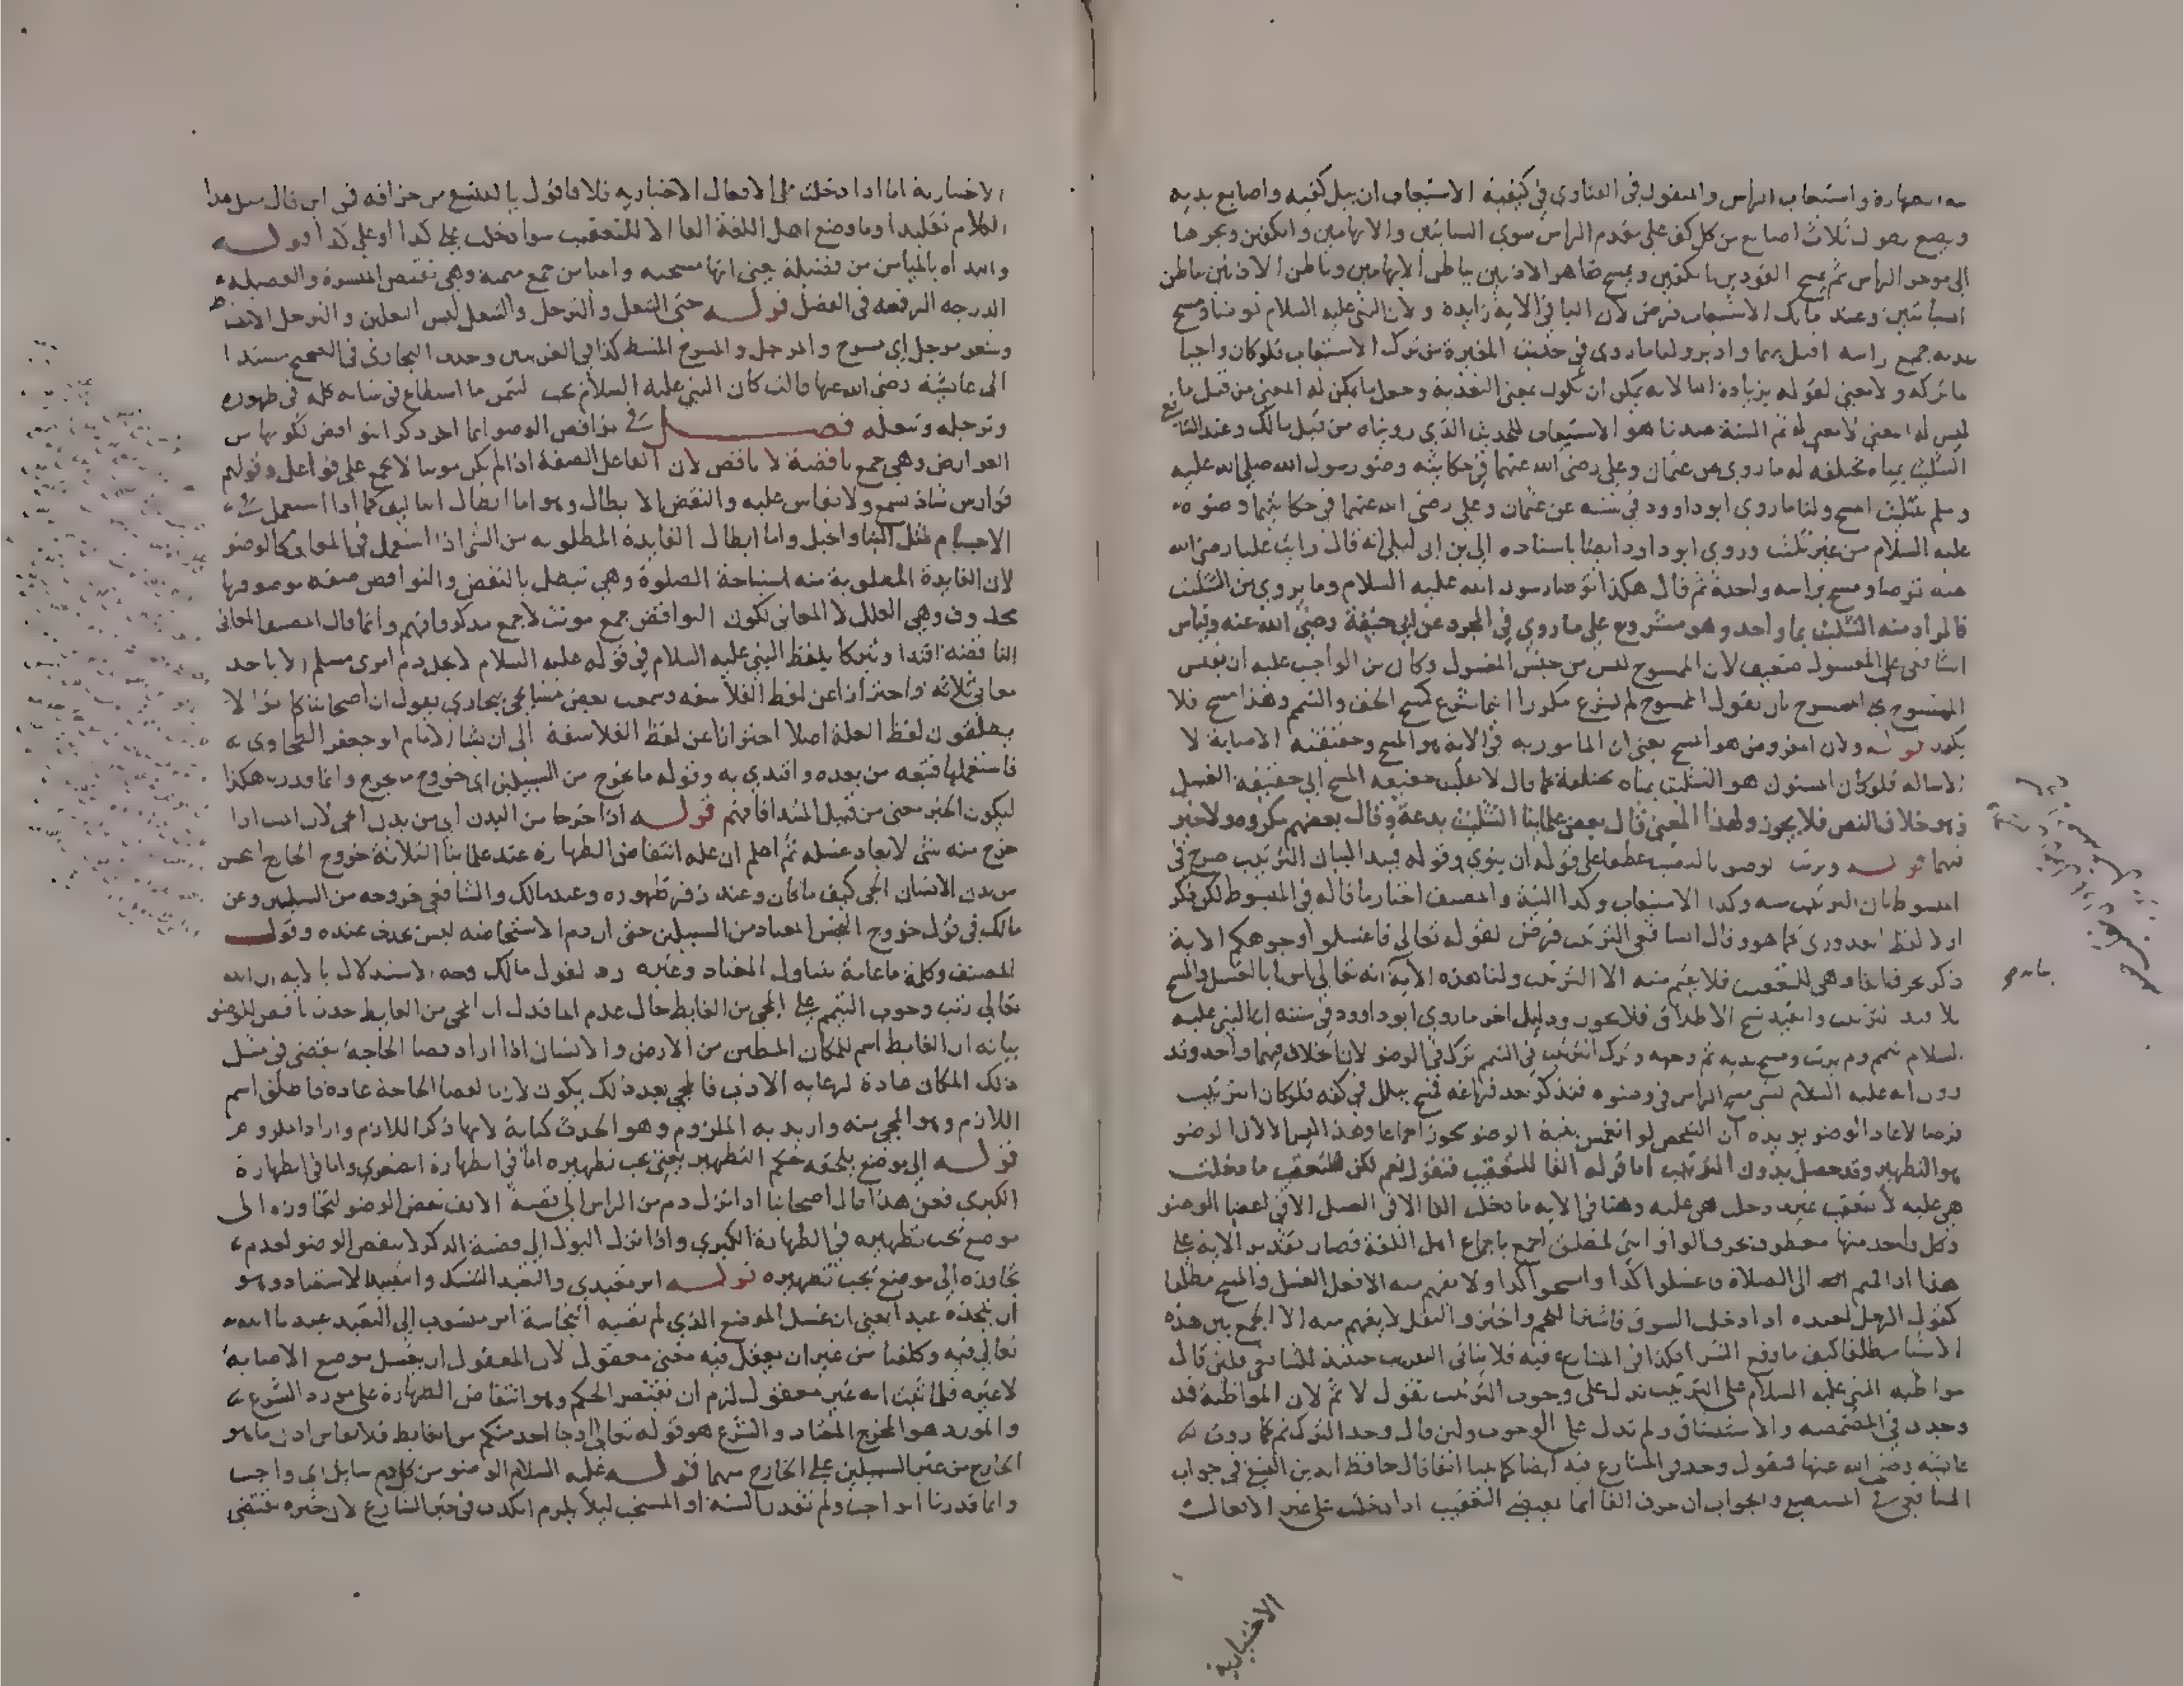 الطهارة واستيعاب الراس والمنقول في الفتاوي في كيفية الاستيعاب ان يبل كفيه واصابع يديه
ويضع بطون ثلاث اصابع من كل كف على مقدم الراس سوى السبابتين والابهامين والكفين ويجرها
الى موخر الراس ثم يمسح الفودين بالكفين ويمسح ظاهر الاذنين بباطن الابهامين وباطن الاذنين بباطن
السبابتين وعند مالك الاستيعاب فرض لان الباء في الاية زايدة ولان النبي عليه السلام توضا ومسح
بيديه جميع راسه اقبل بهما وادبر ولنا ما روى في حديث المغيرة من ترك الاستيعاب فلو كان واجبا
ما تركه ولا معنى لقوله بزيادة الباء لانه يمكن ان يكون بمعنى التعدية وجعل ما يمكن له المعنى من قبيل ما
ليس له معنى لا معنى له ثم السنة عندنا هو الاستيعاب للحديث الذي رويناه من قبل مالك وعند الشافعي
التثليث بمياه مختلفة له ما روى عن عثمان وعلي رضي الله عنهما في حكايته وضو رسول الله صلى الله عليه
وسلم بتثليث المسح ولنا ما روى ابو داوود في سننه عن عثمان وعلي رضي الله عنهما في حكايتهما وضوه
عليه السلام من غير تثليث وروى ابو داود ايضا باسناده الى بن ابي ليلى انه قال رايت عليا رضي الله
عنه توضا ومسح براسه واحدة ثم قال هكذا توضا رسول الله عليه السلام وما يروى من التثليث
فالمراد منه التثليث بما واحد وهو مشروع على ما روي في المجرد عن ابي حنيفة رضي الله عنه وقياس
الشافعي على المغسول ضعيف لان الممسوح ليس من جنس المغسول وكان من الواجب عليه ان يقيس
الممسوح على الممسوح بان يقول الممسوح لم يشرع مكررا انما شرع كمسح الخف والتيمم وهذا مسح فلا
يكرر قوله ولان المفروض هو المسح يعني ان المامور به في الاية هو المسح وحقيقته الاصابة لا
الاسالة فلو كان المسنون هو التثليث بمياه مختلفة كما قال لانقلبت حقيقة المسح الى حقيقة الغسل
وهو خلاف النص فلا يجوز ولهذا المعنى قال بعض علمائنا التثليث بدعة وقال بعضهم مكروه ولا خير
فيهما قوله ويرتب الوضو بالنصب عطفا على قوله ان ينوي وقوله فيبدا لبيان الترتيب صرح في
المبسوط بان الترتيب سنة وكذا الاستيعاب وكذا النية والمصنف اختار ما قاله في المبسوط لكن ذكر
اولا لفظ القدوري كما هو وقال الشافعي الترتيب فرض لقوله تعالى فاغسلوا وجوهكم الاية
ذكر بحرف الفا وهي للتعقيب فلا يفهم منه الا الترتيب ولنا هذه الاية انه تعالى امرنا بالغسل والمسح
بلا قيد ترتيب والتقييد نسخ الاطلاق فلا يجوز ودليل اخر ما روى ابو داوود في سننه ان النبي عليه
السلام تيمم ومسح يديه ثم وجهه وترك الترتيب في التيمم ترك في الوضو لان الخلاف فيهما واحد وقد
روى انه عليه السلام نسي مسح الراس في وضوه فتذكر بعد فراغه فمسح ببلل في كفه فلو كان الترتيب
فرضا لاعاد الوضو يويده ان الشخص لو انغمس بنية الوضو يجوز اجماعا وهذا ليس الا لان الوضو
هو التطهير وقد حصل بدون الترتيب اما قوله الفا للتعقيب فنقول نعم لكن لتعقيب ما دخلت
هي عليه لا لتعقيب غيره دخلت هي عليه وهنا في الاية ما دخلت الفا الا في الغسل لا في اعضا الوضو
وكل واحد منها معطوف بحرف الواو التي لمطلق الجمع باجماع اهل اللغة فصار تقدير الاية على
هذا اذا قمتم الى الصلاة فاغسلوا كذا وامسحوا كذا ولا يفهم منه الا فعل الغسل والمسح مطلقا
كقول الرجل لعبده اذا دخلت السوق فاشتر اللحم والخبز والبقل لا يفهم منه الا الجمع بين هذه
الاشيا مطلقا كيف ما وقع الشرا فكذا في المتنازع فيه فلا يثبت الترتيب حينئذ للشافعي فلئن قال
مواظبة النبي عليه السلام على الترتيب تدل على وجوب الترتيب نقول لا ثم لان المواظبة قد
وجدت في المضمضة والاستنشاق ولم تدل على الوجوب ولئن قال وجد الترك ثم كما روت
عايشة رضي الله عنها فنقول وجد في المتنازع فيه ايضا كما بينا انفا قال حافظ الدين النسفي في جواب
الشافعي في المستصفى والجواب ان حرف الفا انما يقتضي التعقيب اذا دخلت على غير الافعال
الاختيارية
الاختيارية اما اذا دخلت على الافعال الاختيارية فلا فاقول يا للعجب من جزافه في اين قال مثل هذا
الكلام تقليدا وما وضع اهل اللغة الفا الا للتعقيب سوا دخلت على كذا او على كذا قوله
والبداة بالميامن من فضيلة يعني انها مستحبة والميامن جمع ميمنة وهي نقيض الميسرة والفضيلة
الدرجة الرفيعة في الفضل قوله حتى التنعل والترجل والتنعل لبس النعلين والترجل الامتشاط
وشعر مرجل اي مسرح والمرجل والمسرح المشط كذا في الغريبين وحدث البخاري في الصحيح مسندا
الى عايشة رضي الله عنها قالت كان النبي عليه السلام يحب التيمن ما استطاع في شانه كله في طهوره
وترجله وتنعله فصل في نواقض الوضو انما اخر ذكر النواقض لكونها من
العوارض وهي جمع ناقضة لا ناقض لان الفاعل الصفة اذا لم يكن مونثا لا يجمع على فواعل وقولهم
فوارس شاذ يسمع ولا يقاس عليه والنقض الابطال وهو اما ابطال التاليف كما اذا استعمل في
الاجسام مثل البنا والحبل واما ابطال الفايدة المطلوبة من الشي اذا استعمل في المعاني كالوضو
لان الفايدة المطلوبة منه استباحة الصلوة وهي تبطل بالنقض والنواقض صفة موصوفها
محذوف وهي العلل لا المعاني لكون النواقض جمع مونث لا جمع مذكر فافهم وانما قال المصنف المعاني
الناقضة اقتدا وتبركا بلفظ النبي عليه السلام في قوله عليه السلام لا يحل دم امرى مسلم الا باحد
معان ثلاثة واحترازا عن لفظ الفلاسفة وسمعت بعض مشايخي ببخارى يقول ان اصحابنا كانوا لا
يطلقون لفظ العلة اصلا احترازا عن لفظ الفلاسفة الى ان نشا الامام ابو جعفر الطحاوي
فاستعملها فتبعه من بعده واقتدى به وقوله ما يخرج من السبيلين اي خروج ما يخرج وانما قدرنا هكذا
ليكون الخبر معنى من قبيل المبتدا فافهم قوله اذا خرجا من البدن اي من بدن الحي لان الميت اذا
خرج منه شي لا يعاد غسله ثم اعلم ان علة انتقاض الطهارة عند علمائنا الثلاثة خروج الخارج النجس
من بدن الانسان الحي كيف ما كان وعند زفر ظهوره وعند مالك والشافعي خروجه من السبيلين وعن
مالك في قول خروج النجس المعتاد من السبيلين حتى ان دم الاستحاضة ليس بحدث عنده وقول
المصنف وكلمة ما عامة تتناول المعتاد وغيره رد لقول مالك وجه الاستدلال بالاية ان الله
تعالى رتب وجوب التيمم على المجي من الغايط حال عدم الما فدل ان المجي من الغايط حدث ناقض للوضو
بيانه ان الغايط اسم للمكان المطمئن من الارض والانسان اذا اراد قضا الحاجة يقضي في مثل
ذلك المكان عادة لرعاية الادب فالمجي بعد ذلك يكون لازما لقضا الحاجة عادة فاطلق اسم
اللازم وهو المجي منه واريد به الملزوم وهو الحدث كناية لانها ذكر اللازم وارادة الملزوم
قوله الى موضع يلحقه حكم التطهير يعني يجب تطهيره اما في الطهارة الصغرى واما في الطهارة
الكبرى فعن هذا قال اصحابنا اذا نزل دم من الراس الى قصبة الانف نقض الوضو لتجاوزه الى
موضع يجب تطهيره في الطهارة الكبرى واذا نزل البول الى قصبة الذكر لا ينقض الوضو لعدم
تجاوزه الى موضع يجب تطهيره قوله امر تعبدي والتعبد التنسك والتعبيد الاستعباد وهو
ان يتخذه عبدا يعني ان غسل الموضع الذي لم تصبه النجاسة امر منسوب الى التعبد عبدنا الله
تعالى فيه وكلفنا من غير ان يعقل فيه معنى معقول لان المعقول ان يغسل موضع الاصابة
لا غيره فلما ثبت انه غير معقول لزم ان يقتصر الحكم وهو انتقاض الطهارة على مورد الشرع
والمورد هو المخرج المعتاد والشرع هو قوله تعالى او جا احد منكم من الغايط فلا يقاس اذن ما هو
الخارج من غير السبيلين على الخارج منهما قوله عليه السلام الوضو من كل دم سايل اي واجب
وانما قدرنا الواجب ولم نقدر السنة او المستحب ليلا يلزم الكذب في خبر الشارع لان خبره يقتضي